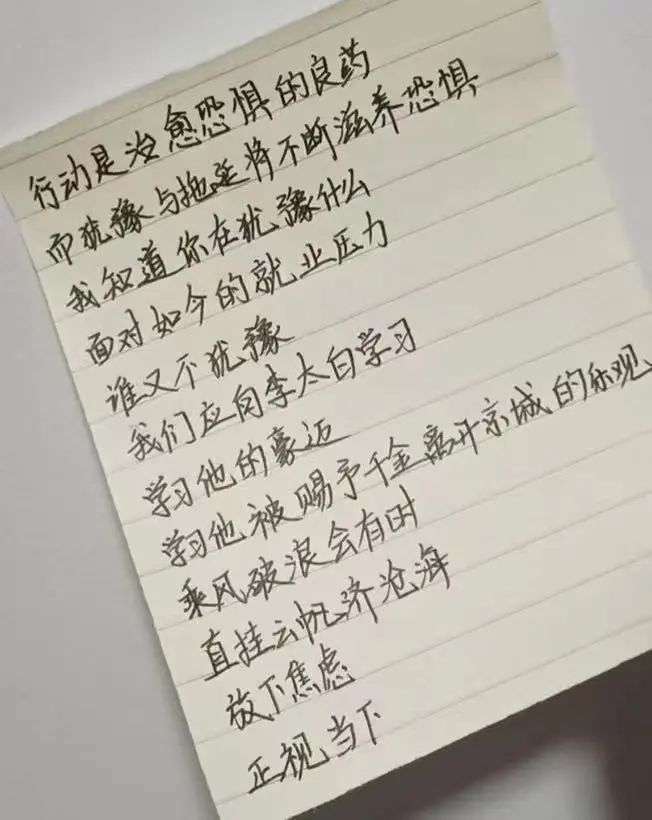 行动是治愈恐惧的良药
而犹豫与拖延将不断滋养恐惧
我知道你在犹豫什么
面对如今的就业压力
谁又不犹豫
我们应向李太白学习
学习他的豪迈
学习他被赐予千金离开京城的乐观
乘风破浪会有时
直挂云帆济沧海
放下焦虑
正视当下